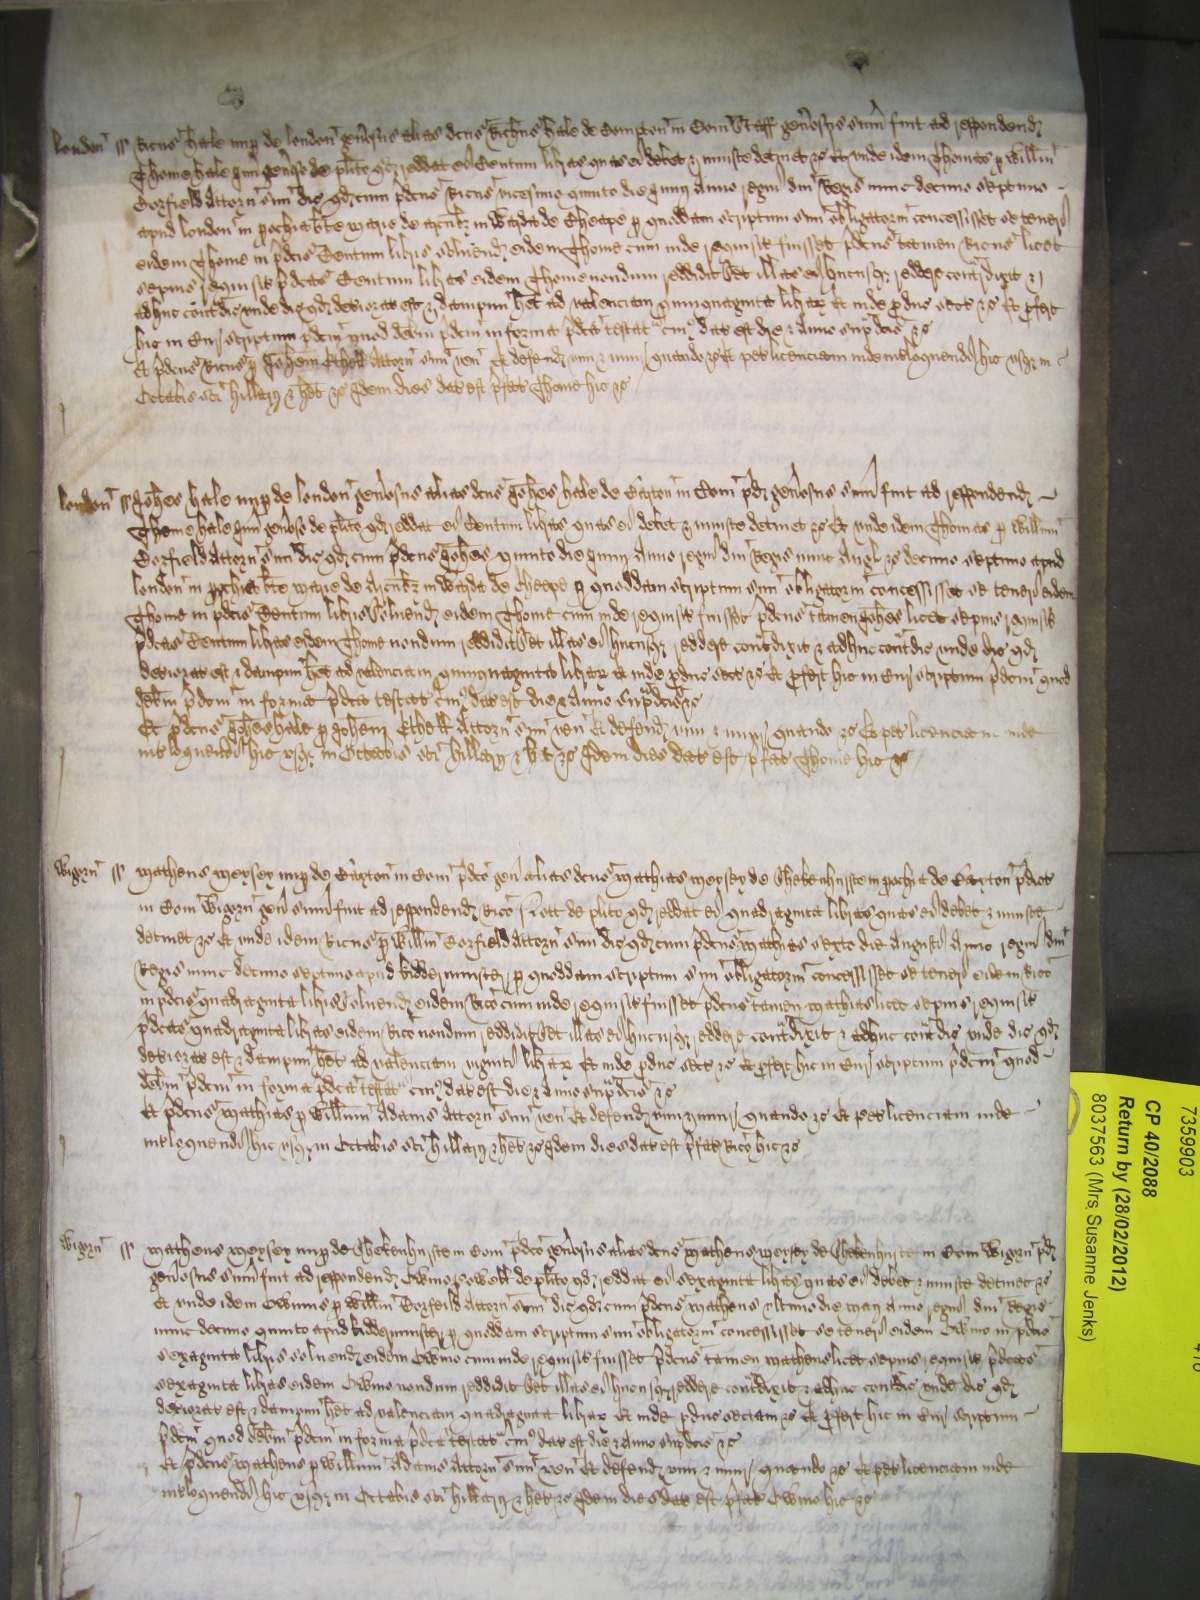 london ss Ricus hale nup de london genosus alias dcus Richus hale de Compton in Com Staff genosus sum fuit ad respondend
Thome hale gen de plito qd reddat ei Centum libras quas ei debet & iniuste detinet &c Et unde idem Thomas p Willm
Corfield attorn suu dic qd cum pdcus Ricus vicesimo quinto die Junij anno regni dni Regis nunc decimo septimo
apud london in pochia bte marie de arcubz in Warda de Cheape p quoddam scriptum suu obligatoriu concessisset se teneri
eidem Thome in pdcis Centum libris solvend eidem Thome cum inde requisit fuisset pdcus tamen Ricus licet
sepius requisit pdcas Centum libras eidem Thome nondum reddidit set ill ei hucusqz reddere contradixit &
adhuc contradic unde dic qd deteriorat est & dampnu het ad valenciam quinquaginta librar Et inde pduc sect &c Et pfert
hic in Cur scriptum pdcm quod debm pdcm in forma pdca testat cuius dat est die & anno supdcis &c
Et pdcus Ricus p Johem attorn suu ven Et defend vim & iniur quando &c Et pet licenciam inde interloquendi hic usqz in
Octabis sci hillarij & het &c Idem dies dat est pfat Thome hic &c
london ss Johes hale nup de london genosus alias dcus Johes hale de in Com pd genosus sum fuit ad respondend
Thome hale genoso de plito qd reddat ei Centum libras quas ei debet & iniuste detinet &c Et unde idem Thomas p Willm
Corfield attorn suu dic qd cum pdcus Johes quinto die Junij anno regni dni Regis nunc Angl &c decimo septimo apud
london in pochia bte marie de Arcubz in Warda de Cheape p quoddam scriptum suu obligatoriu concessisset se teneri eidem
Thome in pdcis Centum libris solvend eidem Thome cum inde requisit fuisset pdcus tamen Johes licet sepius requisit
pdcas Centum libras eidem Thome nondum reddidit set illas ei hucusqz reddere contradixit & adhuc contradic unde dic qd
deteriorat est & dampnu het ad valenciam quinquaginta librar Et inde pduc sect &c Et pfert hic in Cur scriptum pdcm quod
debm pdcm in forma pdca testat cuius dat est die & anno supdcis &c
Et pdcus Johes hale p Johem attorn suu ven Et defend vim & iniur quando &c Et pet licenciam inde
interloquendi hic usqz in Octabis sci hillarij & het &c Idem dies dat est pfat Thome hic &c
Wigorn ss Matheus nup de in Com pdco gen alias dcus Mathias de in pochia de pdict
in Com Wigorn gen sum fuit ad respondend Rico de plito qd reddat ei quadraginta libras quas ei debet & iniuste
detinet &c Et unde idem Ricus p Willm Corfield attorn suu dic qd cum pdcus Mathias sexto die Augusti Anno regni dni
Regis nunc decimo septimo apud Kidderminster p quoddam scriptum suu obligatoriu concessisset se teneri eidem Rico
in pdcis quadraginta libris solvend eidem Rico cum inde requisit fuisset pdcus tamen Mathias licet sepius requisit
pdcas quadraginta libras eidem Rico nondum reddidit set illas ei hucusqz reddere contradixit & adhuc contradic unde dic qd
deteriorat est & dampnu het ad valenciam viginti librar Et inde pduc sect &c Et pfert hic in Cur scriptum pdcm quod
debm pdcm in forma pdca testat cuius dat est die & anno supdcis &c
Et pdcus Mathias p Willm Adams attorn suu ven Et defend vim & iniur quando &c Et pet licenciam inde
interloquendi hic usqz in Octabis sci hillarij & het &c Idem dies dat est pfat Rico hic &c
Wigorn ss Matheus nup de in Com pdco genosus alias dcus Matheus de in Com Wigorn pd
genosus sum fuit ad respondend Owino de plito qd reddat ei sexaginta libras quas ei debet & iniuste detinet &c
Et unde idem Owinus p Willm Corfeild attorn suu dic qd cum pdcus Matheus ultimo die Maij Anno regni dni Regis
nunc decimo quinto apud Kidderminster p quoddam scriptum suu obligatoriu concessisset se teneri eidem Owino in pdcis
sexaginta libris solvend eidem Owino cum inde requisit fuisset pdcus tamen Matheus licet sepius requisit pdcas
sexaginta libras eidem Owino nondum reddidit set illas ei hucusqz reddere contradixit & adhuc contradic unde dic qd
deteriorat est & dampnu het ad valenciam quadraginta librar Et inde pduc sectam &c Et pfert hic in Cur scriptum
pdcm quod debm pdcm in forma pdca testat cuius dat est die & anno supdcis &c
Et pdcus Matheus p Willum Adams attorn suu ven Et defend vim & iniur quando &c Et pet licenciam inde
interloquendi hic usqz in Octabis sci hillarij & het &c Idem dies dat est pfat Owino hic &c
7359903
CP 40/2088
Return by (28/02/2012)
8037563 (Mrs Susanne Jenks)